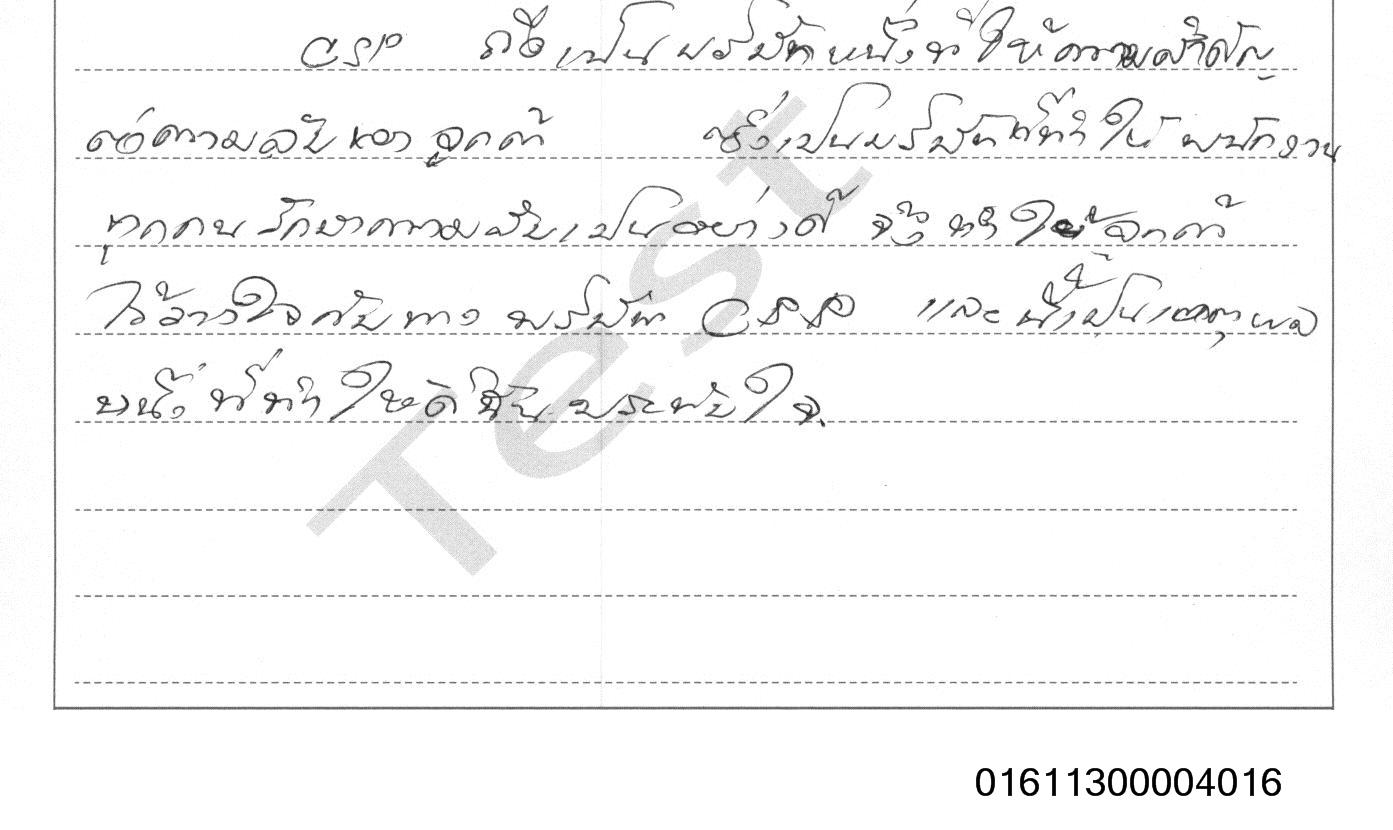 CSP ถือเป็นบริษัทหนึ่งที่ให้ความสำคัญ
ต่อความลับของลูกค้า ซึ่งเป็นบริษัทที่ทำให้พนักงาน
ทุกคนรักษาความลับเป็นอย่างดี จึงทำให้ลูกค้า
ไว้วางใจกับทางบริษัท CSP และนี้เป็นเหตุผล
หนึ่งที่ทำให้ดิฉันประทับใจ
Test
01611300004016